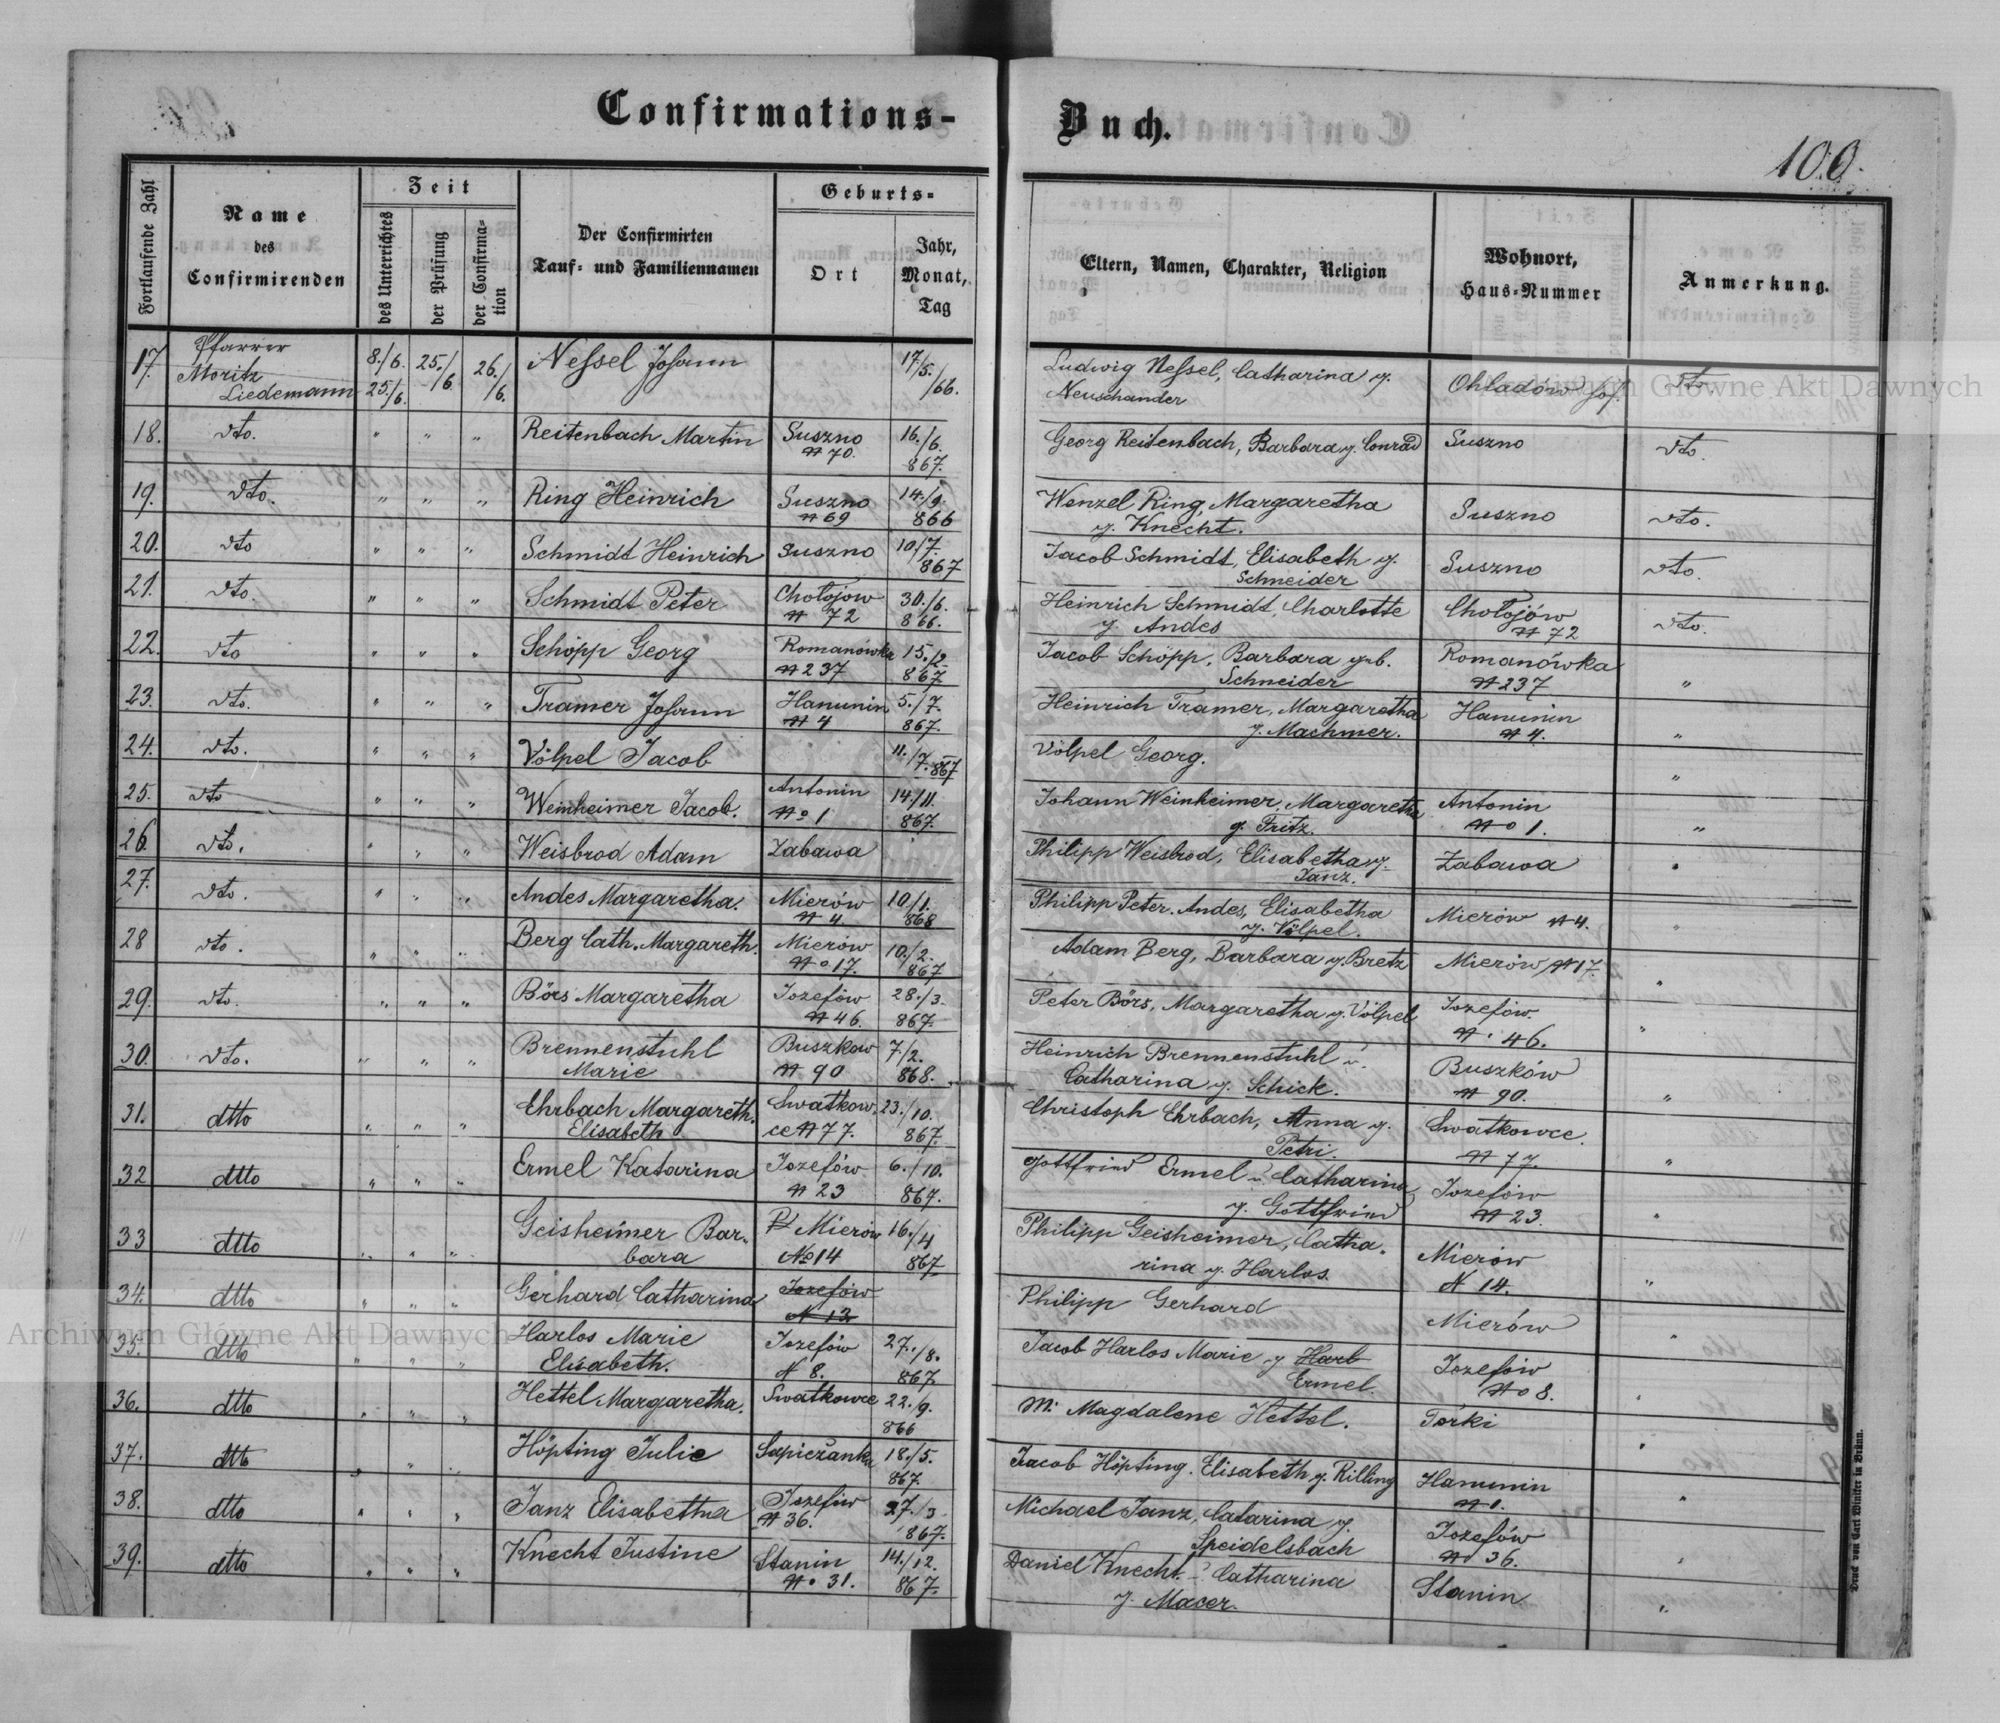 Confirmations-
Buch.
100.
Fortlaufende Zahl
Name
des
Confirmirenden
Zeit
des Unterrichtes
der Prüfung
der Confirma-
tion
Der Confirmirten
Tauf- und Familiennamen
Geburts-
Ort
Jahr,
Monat,
Tag
Eltern, Namen, Charakter, Religion
Wohnort,
Haus-Nummer
Anmerkung.
17. Pfarrer Moritz Liedemann 8./6. 25./6. 25./6. 26./6. Nessel Johann 17/5./66. Ludwig Nessel, Catharina g. Neuschander Ohladów Jos. dto
18. dto. " " " Reitenbach Martin Suszno № 70. 16./6. 867. Georg Reitenbach, Barbara g. Conrad Suszno dto.
19. dto. " " " Ring Heinrich Suszno № 69 14./9. 866 Wenzel Ring, Margaretha g. Knecht. Suszno dto.
20. dto " " " Schmidt Heinrich Suszno 10/7. 867 Jacob Schmidt, Elisabeth g. Schneider Suszno dto.
21. dto. " " " Schmidt Peter Chołojow № 72 30./6. 866. Heinrich Schmidt, Charlotte g. Andes Chołojów № 72 dto.
22. dto " " " Schöpp Georg Romanówka № 237 15./2. 867 Jacob Schöpp, Barbara geb. Schneider Romanówka № 237 "
23. dto. " " " Tramer Johann Hanunin № 4 5./7. 867. Heinrich Tramer, Margaretha g. Machmer. Hanunin № 4. "
24. dto. " " " Völpel Jacob 11./7. 867 Völpel Georg. "
25. dto " " " Weinheimer Jacob. Antonin No 1 14./11. 867. Johann Weinheimer, Margaretha g. Fritz. Antonin No 1. "
26. dto. " " " Weisbrod Adam Zabawa Philipp Weisbrod, Elisabetha g. Janz. Zabawa "
27. dto. " " " Andes Margaretha. Mierów № 4. 10/1. 868 Philipp Peter Andes, Elisabetha g. Völpel. Mierów № 4. "
28 dto. " " " Berg Cath. Margareth. Mierów No 17. 10./2. 867 Adam Berg, Barbara g. Bretz Mierów № 17. "
29. dto. " " " Börs Margaretha Jozefów № 46. 28./3. 867. Peter Börs, Margaretha g. Völpel Jozefów. № 46. "
30. dto. " " " Brennenstuhl Marie Buszkow № 90 7/2. 868. Heinrich Brennenstuhl u. Catharina g. Schick. Buszków № 90. "
31. dtto " " " Ehrbach Margareth. Elisabeth Swatkow. ce № 77. 23./10. 867. Christoph Ehrbach, Anna g. Petri. Swatkowce. № 77. "
32 dtto " " " Ermel Katarina Jozefów № 23 6./10. 867. Gottfried Ermel u. Catharina g. Gottfried Jozefów № 23. "
33 dtto " " " Geisheimer Bar- bara Mierów No 14 16./4 867 Philipp Geisheimer, Catha- rina g. Harlos. Mierów N 14. "
34. dtto " " " Gerhard Catharina Jozefów N 12 Philipp Gerhard Mierów "
35. dtto " " " Harlos Marie Elisabeth. Jozefów N 8. 27./8. 867 Jacob Harlos Marie g Harb Ermel. Jozefów No 8. "
36. dtto " " " Hettel Margaretha. Swatkowce 22./9. 866 M. Magdalene Hettel. Torki "
37. dtto " " " Höpting Julie Sapieżanka 18./5. 867. Jacob Höpting. Elisabeth g. Rilling Hanunin № 1. "
38. dtto " " " Janz Elisabetha Jozefów № 36. 27./3 867. Michael Janz, Catarina g. Speidelsbach Jozefów No 36. "
39. dtto " " " Knecht Justine Stanin No 31. 14./12. 867. Daniel Knecht. u. Catharina g. Macer. Stanin "
Druck von Carl Winiker in Brünn.
Archiwum Główne Akt Dawnych
Archiwum Główne Akt Dawnych